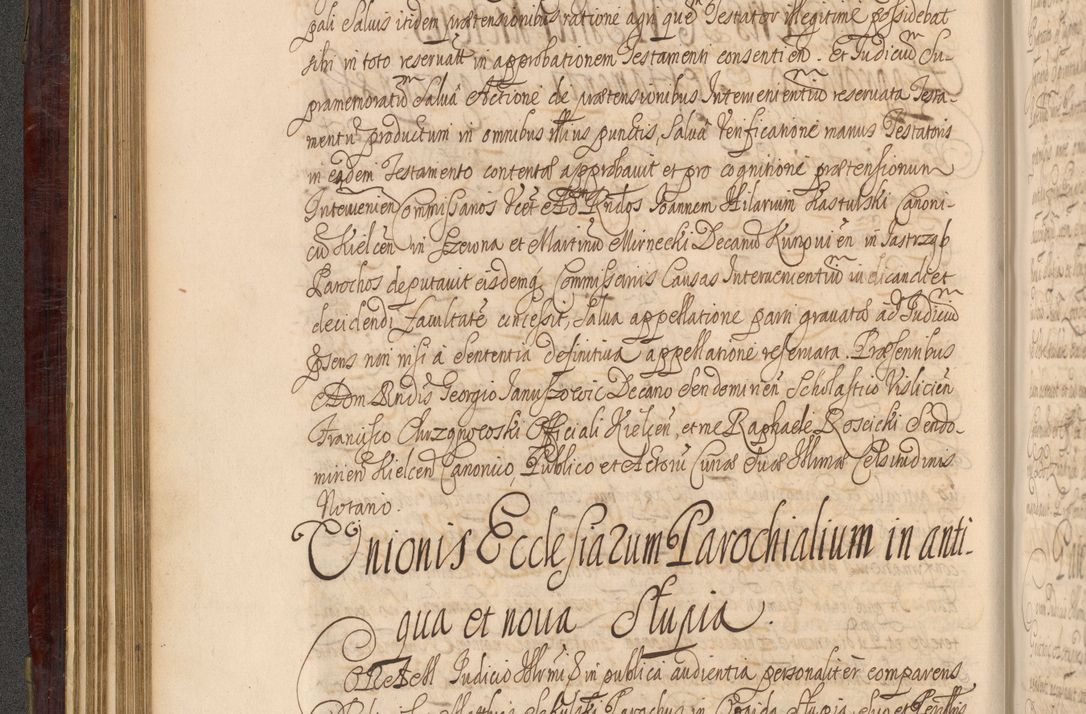 pali Salvis itidem prætensionibus ratione agri quẽ Testator illegitime possidebat
sibi in toto reservatt in approbationem Testamenti consentien. Et Iudiciũ Su-
pramemoratũ Salvâ Actione de prætensionibus Intervenientiũ reservata Testa-
mentũ productum in omnibus illius punctis, Salvâ Verificatione manus Testatoris
in eodem Testamento contentas approbavit et pro cognitione prætensionum
Intervenien Commissarios Vener ADR Rndos Ioannem Hilarium Kastulski Canoni-
cũ Kielcen in et Martinũ Mirnecki Decanũ Kunovien in Jastrząb
Parochos deputavit eisdemq Commissariis Causas Intervenientiũ iudicandi et
decidendi facultatẽ concessit, Salva appellatione parti gravatæ ad Iudiciũ
Psens non nisi à Sententia definitiva appellatione reservata. Præsentibus
ADom Rndis Georgio Januszowic Decano Sendomirien Scholastico Vislicien
Francisco Chrzanowski Officiali Kielcen, et me Raphaele Roscicki Sendo-
mirien Kielcen Canonico, Publico et Actorũ Curiæ Suæ Illmæ Celsitudinis
Notario.
Unionis Ecclesiarum Parochialium in anti-
qua et nova Slupia.
Coram Iudicio Illrmi & in publica audientia personaliter comparens
Mathias Parochus in Slupia, suo et